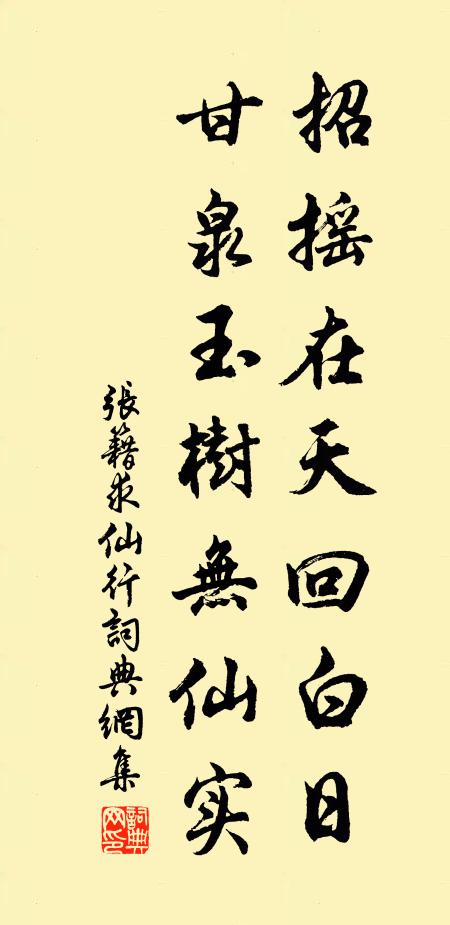 招摇在天回白日
甘泉玉樹無仙实
張籍求仙行詞典網集
詞典网印